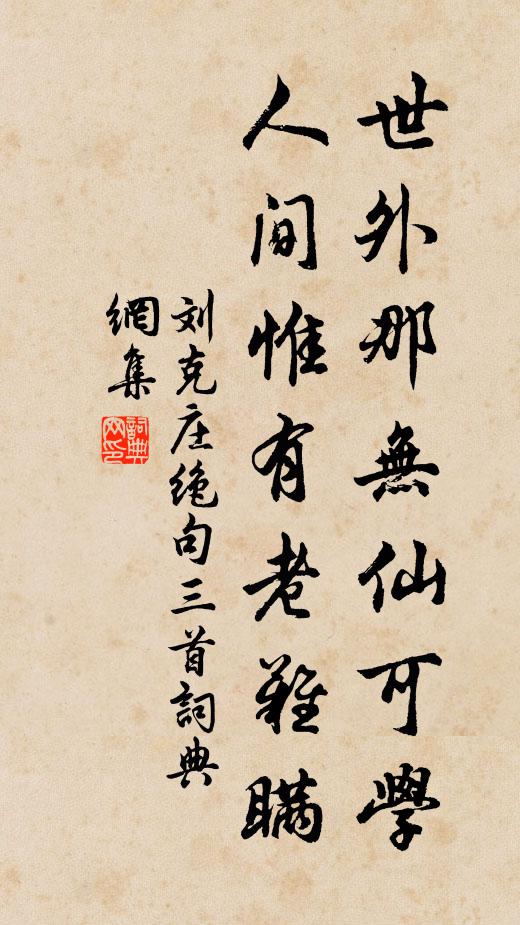 世外那無仙可學
人間惟有老難瞞
刘克庄绝句三首詞典
網集
詞典
网印